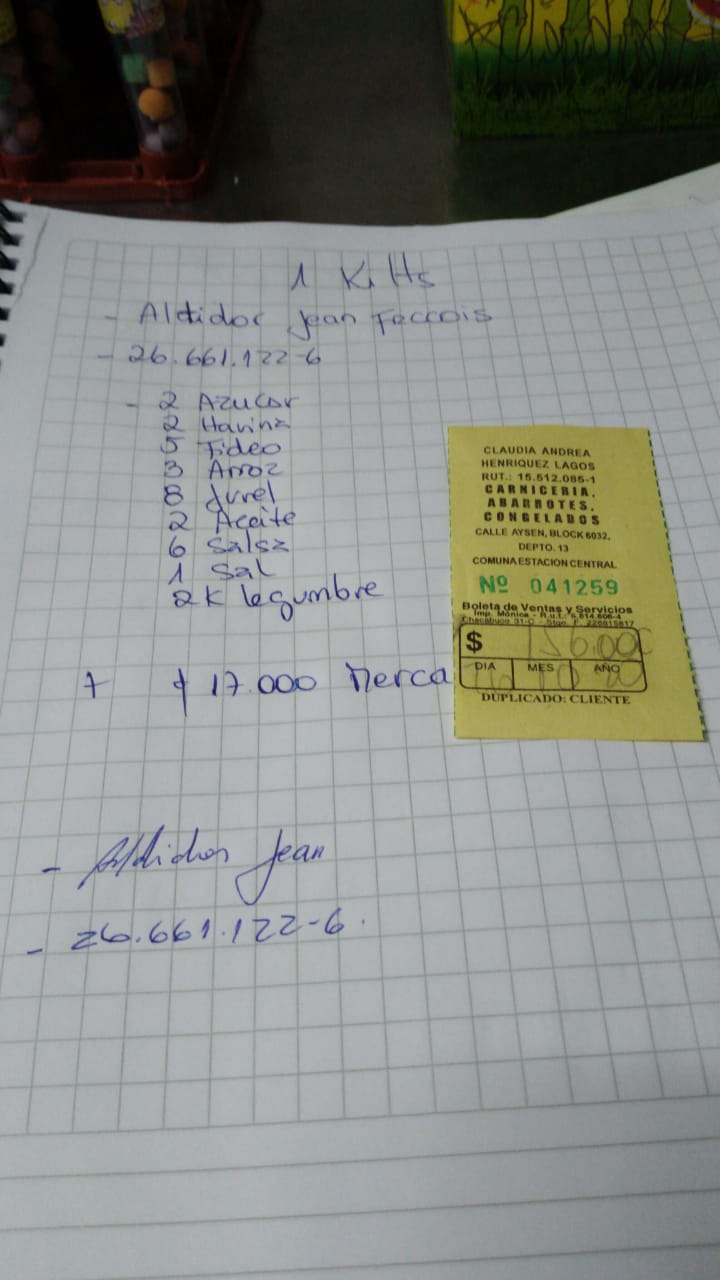 1 Kilts
- Aldidor Jean Feccois
- 26.661.122-6
- 2 Azucar
2 Harina
5 Fideo
3 Arroz
8 Jurel
2 Aceite
6 Salsa
1 Sal
2K legumbre
+ $ 17.000 Merca
- Aldidor Jean
- 26.661.122-6.
CLAUDIA ANDREA
HENRIQUEZ LAGOS
RUT.: 15.512.085-1
CARNICERIA,
ABARROTES,
CONGELADOS
CALLE AYSEN, BLOCK 6032,
DEPTO. 13
COMUNA ESTACION CENTRAL
Nº 041259
Boleta de Ventas y Servicios
Imp. Mónica - R.u.t.: 5.814.606-4
Chacabuco 31-C - Stgo. F. 226815817
$
DIA MES AÑO
DUPLICADO: CLIENTE